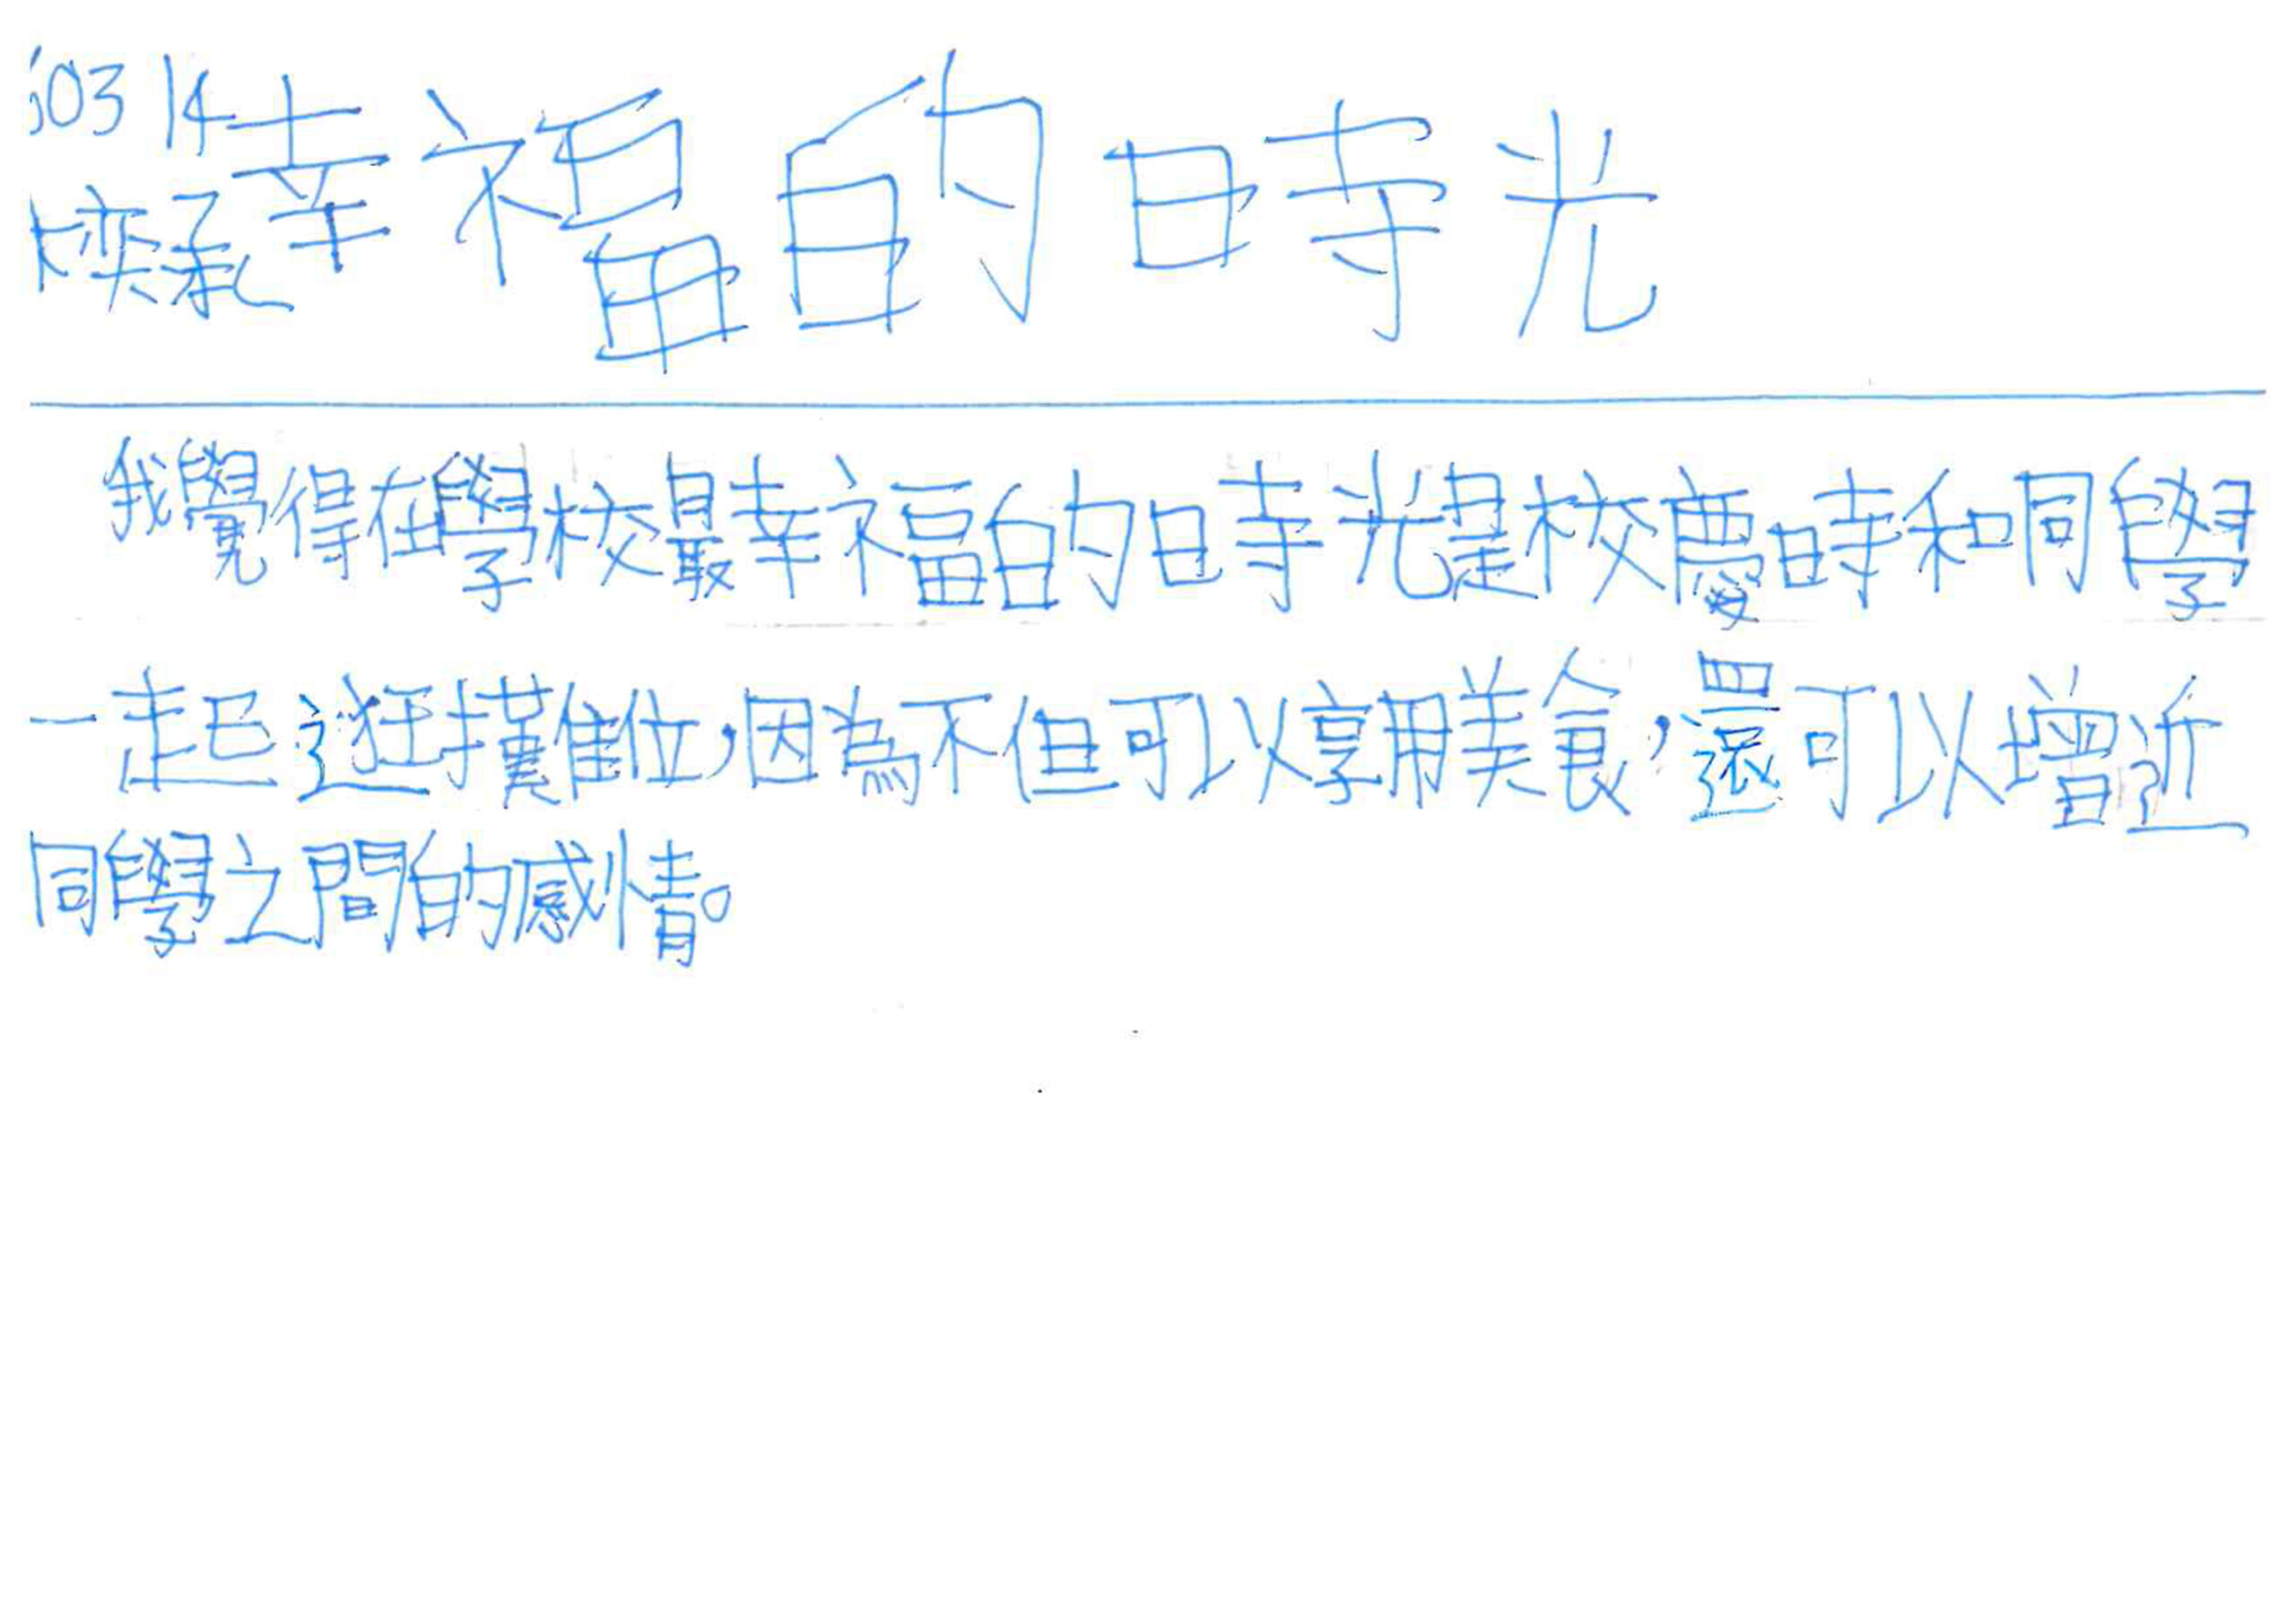 03 14 幸福的時光
奕承
我覺得在學校最幸福的時光是校慶時和同學
一起逛攤位,因為不但可以享用美食,還可以增近
同學之間的感情。